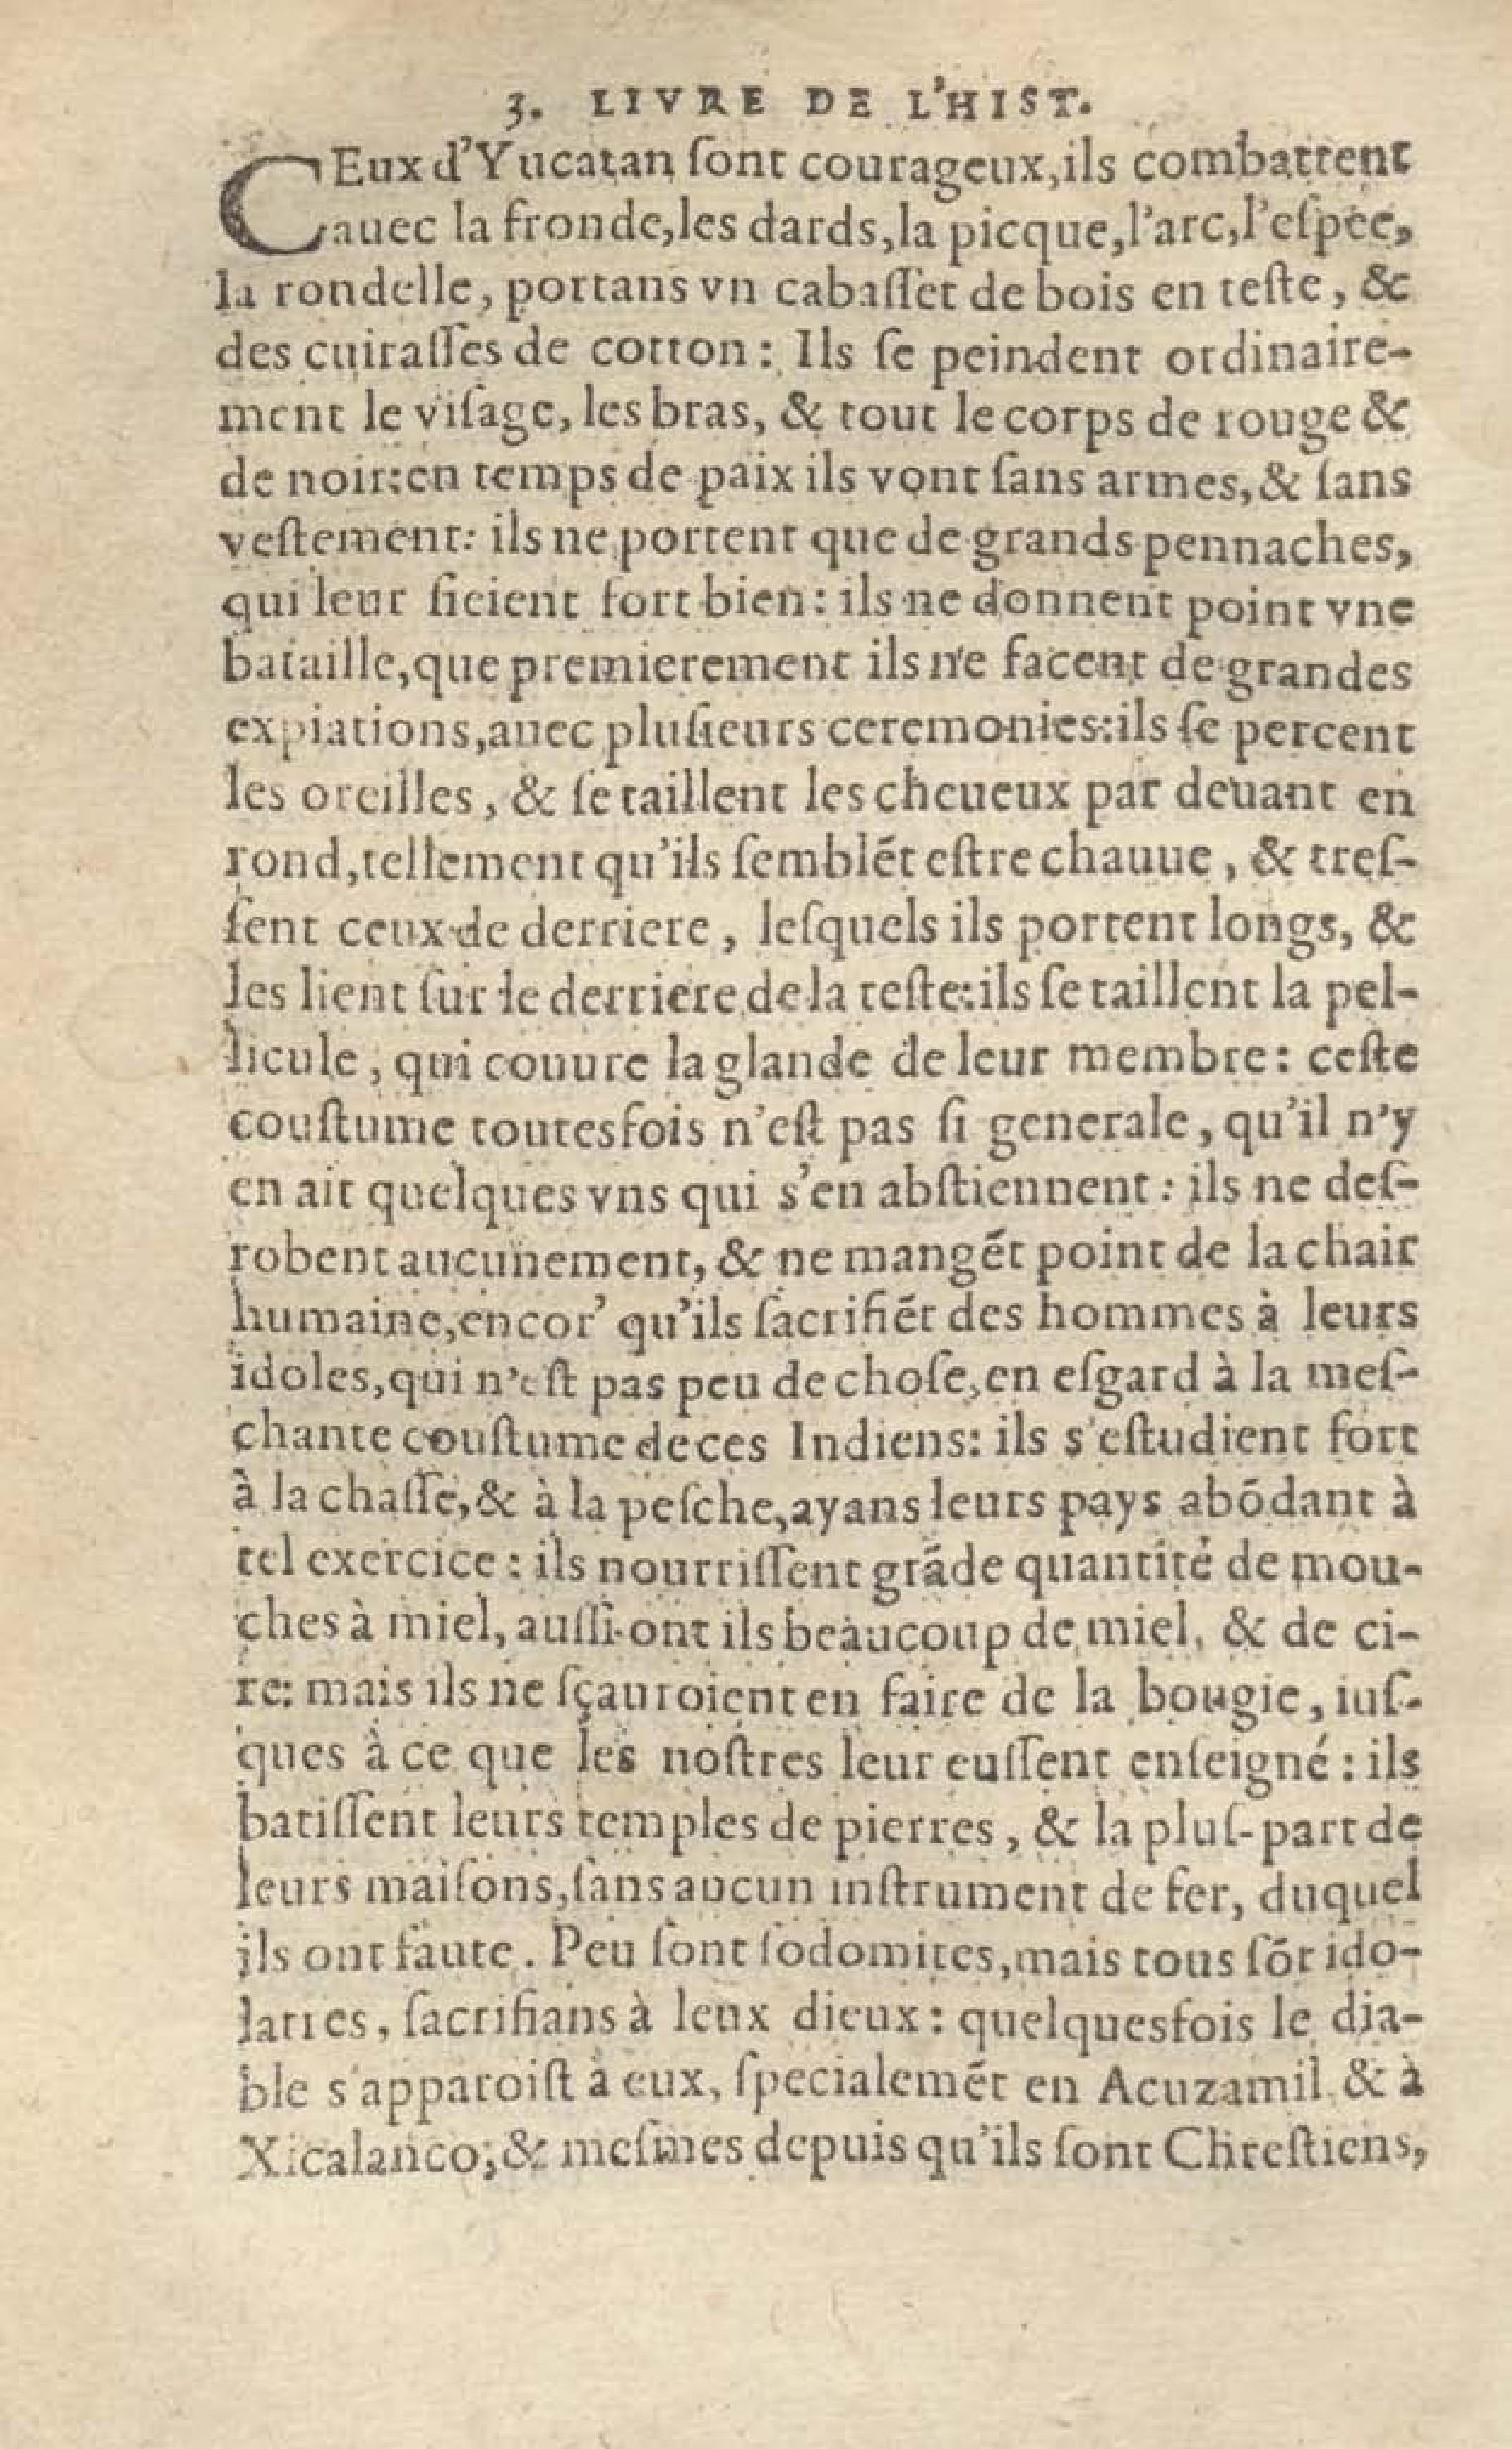 3. LIVRE DE L'HIST.
CEux d'Yucatan ſont courageux,ils combattent
auec la fronde,les dards,la picque,l'arc,l'eſpee,
la rondelle, portans vn cabaſſet de bois en teſte, &
des cuiraſſes de cotton: Ils ſe peindent ordinaire-
ment le viſage, les bras, & tout le corps de rouge &
de noir:en temps de paix ils vont ſans armes,& ſans
veſtement: ils ne portent que de grands pennaches,
qui leur ſieient fort bien: ils ne donnent point vne
bataille,que premierement ils ne facent de grandes
expiations,auec pluſieurs ceremonies:ils ſe percent
les oreilles, & ſe taillent les cheueux par deuant en
rond,tellement qu'ils ſemblẽt eſtre chauue, & treſ-
ſent ceux de derriere, leſquels ils portent longs, &
les lient ſur le derriere de la teſte:ils ſe taillent la pel-
licule, qui couure la glande de leur membre: ceſte
couſtume toutesfois n'eſt pas ſi generale, qu'il n'y
en ait quelques vns qui s'en abſtiennent: ils ne deſ-
robent aucunement, & ne mangẽt point de la chair
humaine,encor' qu'ils ſacrifiẽt des hommes à leurs
idoles,qui n'eſt pas peu de choſe,en eſgard à la meſ-
chante couſtume de ces Indiens: ils s'eſtudient fort
à la chaſſe,& à la peſche,ayans leurs pays abõdant à
tel exercice: ils nourriſſent grãde quantité de mou-
ches à miel, auſſi ont ils beaucoup de miel, & de ci-
re: mais ils ne ſçauroient en faire de la bougie, iuſ-
ques à ce que les noſtres leur euſſent enſeigné: ils
batiſſent leurs temples de pierres, & la pluſ-part de
leurs maiſons,ſans aucun inſtrument de fer, duquel
ils ont faute. Peu ſont ſodomites,mais tous ſõt ido-
latres, ſacrifians à leux dieux: quelquesfois le dia-
ble s'apparoiſt à eux, ſpecialemẽt en Acuzamil, & à
Xicalanco,& meſmes depuis qu'ils ſont Chreſtiens,